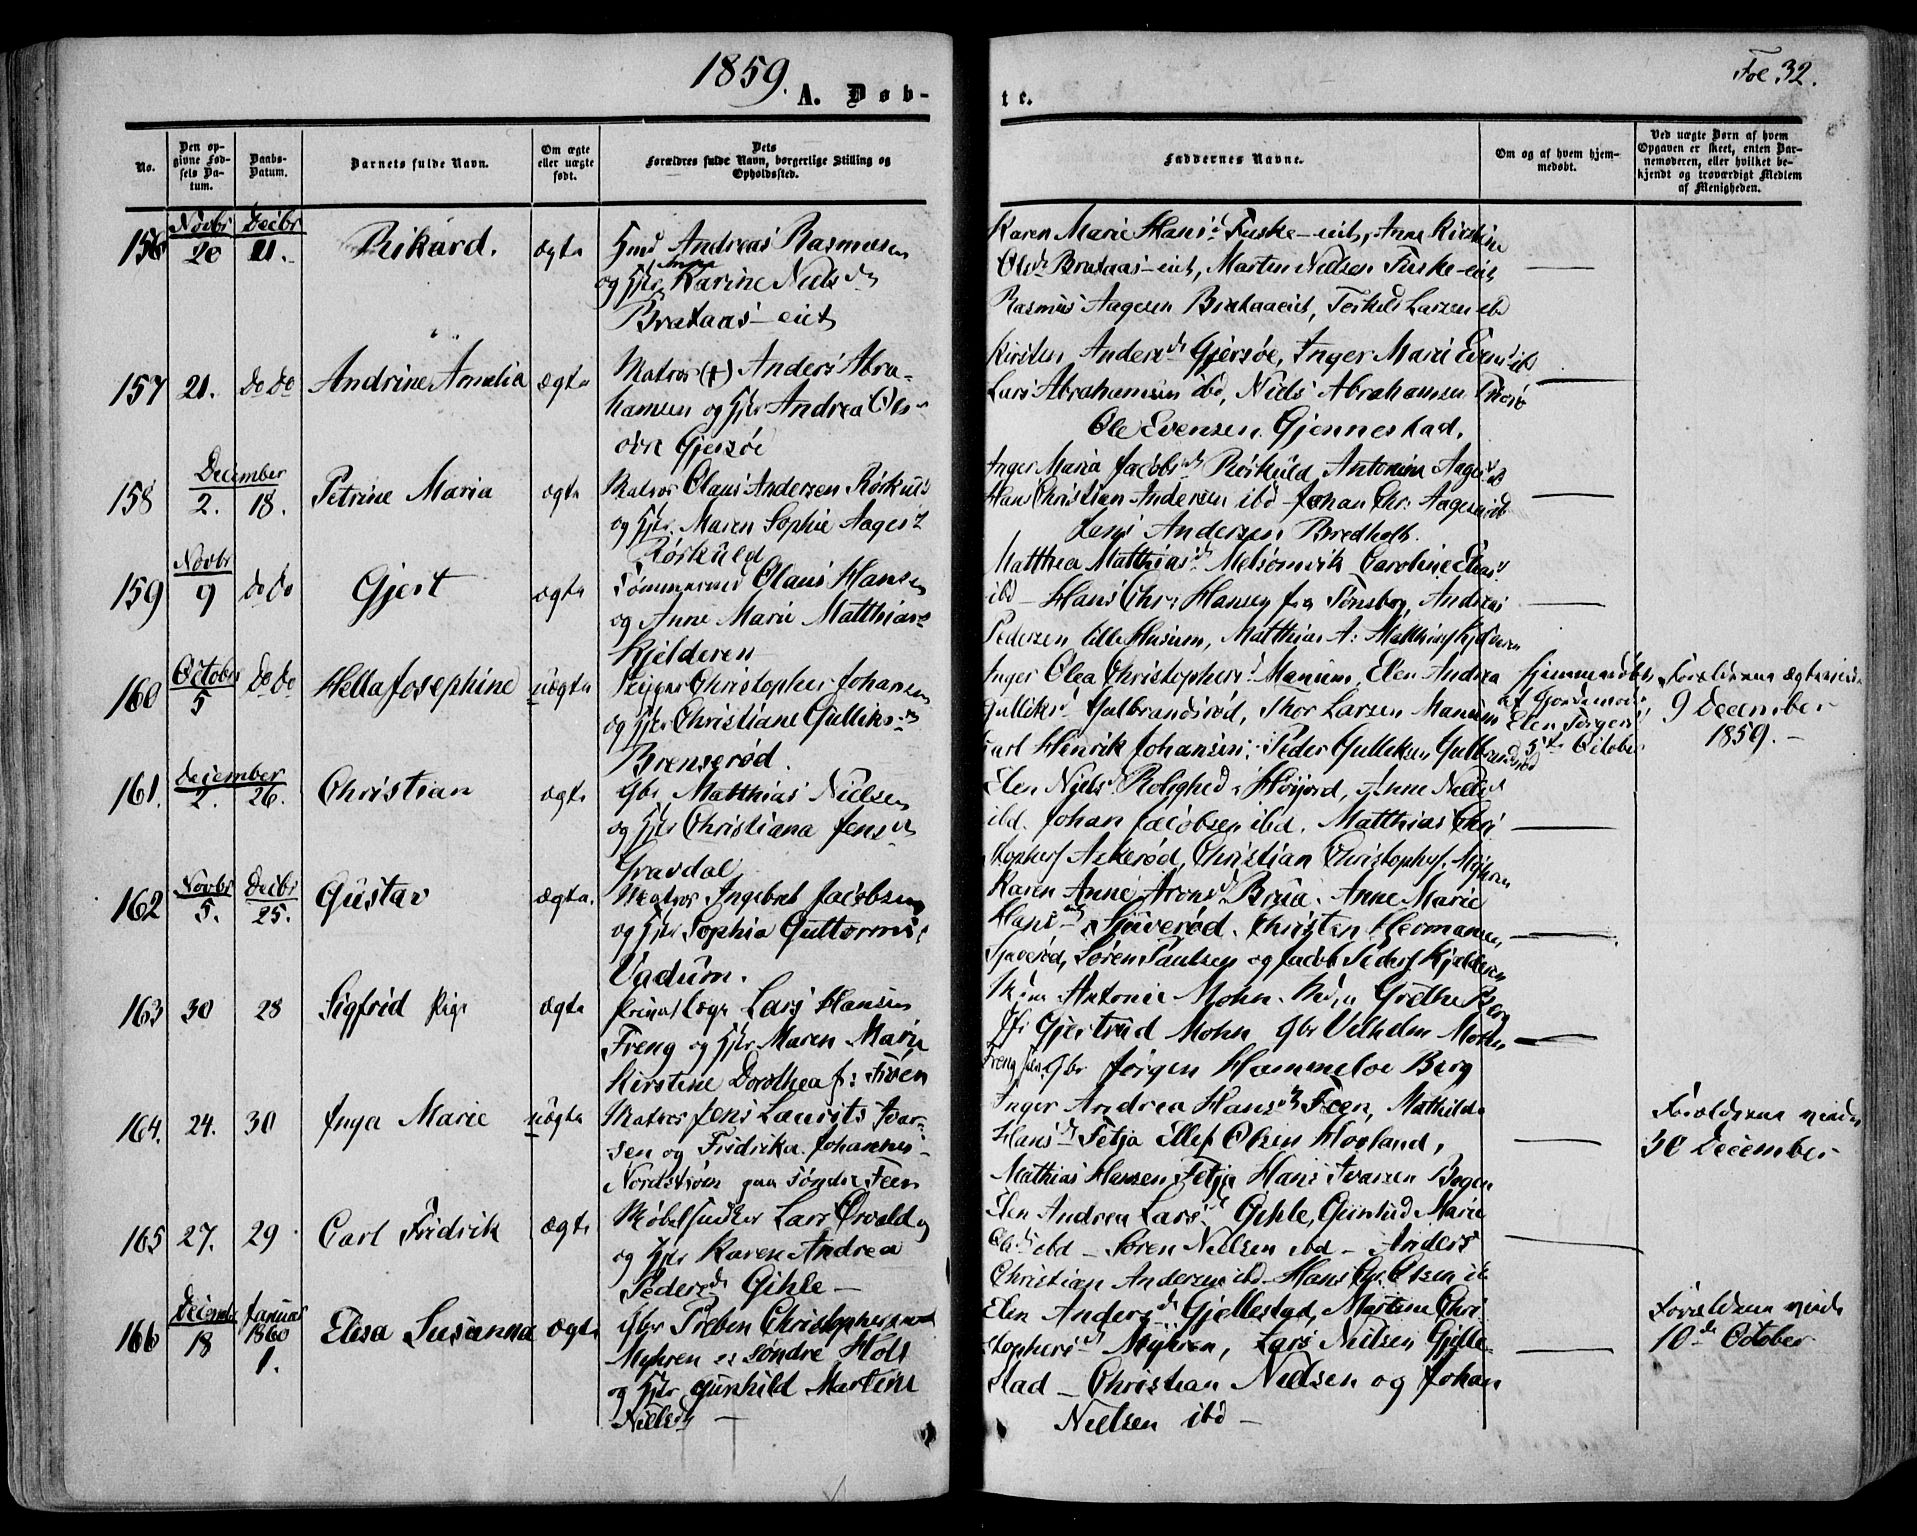 1859.
A. Døb-
te.
Fol 32.
No.
Den op-
givne Fød-
sels Da-
tum.
Daabs-
Datum.
Barnets fulde Navn.
Om ægte
eller uægte
født.
Dets
Forældres fulde Navn, borgerlige Stilling og
Opholdssted.
Faddernes Navne.
Om og af hvem hjem-
medøbt.
Ved uægte Børn af hvem
Opgaven er skeet, enten Bar-
nemoderen, eller hvilket be-
kjendt og troværdigt Medlem
af Menigheden.
Novbr Decbr
156 20 11. Rikard. ægte Andreas Rasmussen
og Hjer Anne Karine Niels
Brataas-eiet
Karen Marie Hans Fuske-eiet, Anne Kirstine
Ols Brataas-eiet, Marten Nielsen Fuske-eiet
Rasmus Aagesen Brataaseiet, Terkild Larsen ibd
157 21. do do Andrine Amalia ægte Matros (+) Anders Abra-
hamsen og Hjer Andrea Ols
Gjersøe
Kirsten Anders Gjersøe, Inger Marie Evens ib
Lars Abrahamsen ibd, Niels Abrahamsen
Ole Evensen Gjennestad.
December
158 2. 18. Petrine Maria ægte Matros Olaus Andersen Rørkuld
og Hjer Maren Sophie Aages
Rørkuld
Inger Maria Jacobs Rørkuld, Antonine Aages
Hans Christian Andersen ibd - Johan Chr. Aagesen ibd
Andersen Bredholt.
Novbr
159 9 do do Gjert ægte Tømmermd Olaus Hansen
og Anne Marie Matthias
Kjelderen
Matthea Matthias Melsomvik Caroline
ibd - Hans Chr. Hansen fra Tønsberg, Andreas
Pedersen lille Husum, Matthias A. Kjelderen
October
160 5 do do Hella Josephine uægte Christopher Johansen
og Hjer Christiane Gulliks
Brenserød.
Inger Olea Christophers Manum, Elen Andrea
Gulliks Gulbrandsrød, Thor Larsen Manum
Carl Henrik Johansen, Peder Gulliksen Gulbrandsrød
Hjemmedøbt
af Gjordemoder
Elen
5te October
Forældrene ægteviede
9 December
1859. -
December
161. 2. 26. Christian ægte Gbr Matthias Nielsen
og Hjer Christiana Jens
Gravdal
Elen Niels Rolighed, Høijord, Anne Niels
ibd. Johan Jacobsen ibd. Matthias Chri
stophers Askerød, Christian Christophers. Myhren
Novbr Decbr
162 5. 25. Gustav ægte. Matros Ingebret Jacobsen
og Hjer Sophia Guttorms
Vadum.
Karen Anne Arons Brua. Anne Marie
Hans Sjuverød. Christen Hermansen
Sjuverød, Søren Paulsen og Jacob Peders Kjelderen
163 30 28 Sigfrid Pige ægte Privat Læge Lars Hansen
Freng og Hjer Maren Marie
Kirstine Dorothea f: Foien
Antonie Mohn. Grethe Berg
Gjertrud Mohn Gbr Vilhelm
Gbr Jørgen Hammeloe Berg
164. 24. 30 Inga Marie uægte Matros Jens Laurits Ivar-
sen og Fredrika Johannes
Nordstrøm paa Søndre Foen
Inger Andrea Hans Foen, Mathilde
Hans Fetja Ellef Olsen Hovland,
Mathias Hansen Fetja Hans Ivarsen Bogen
Forældrene viede
30 December
165 27. 29 Carl Fridrik ægte Møbelsnedker Lars Orvald
og Hjer Karen Andrea
Peders Gihle -
Elen Andrea Lars Gihle, Gunild Marie
Ols ibd - Søren Nielsen ibd - Anders
Christian Andersen ibd - Hans Olsen ib
Decembr Januar
1860
166 18 1. Elisa Susanna ægte Gbr Preben Christophersen
Myhren søndre Holt
og Hjer Gunhild Martine
Niels -
Elen Anders Gjellestad, Martine Chri
stophers Myhren, Lars Nielsen Gjelle-
stad - Christian Nielsen og Johan
Nielsen ibd -
Forældrene viede
10de October